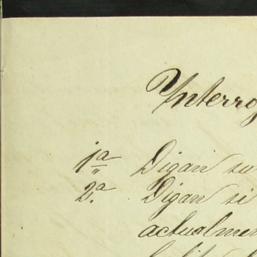 Interro
1ª Digan su
2ª Digan si
actualmen